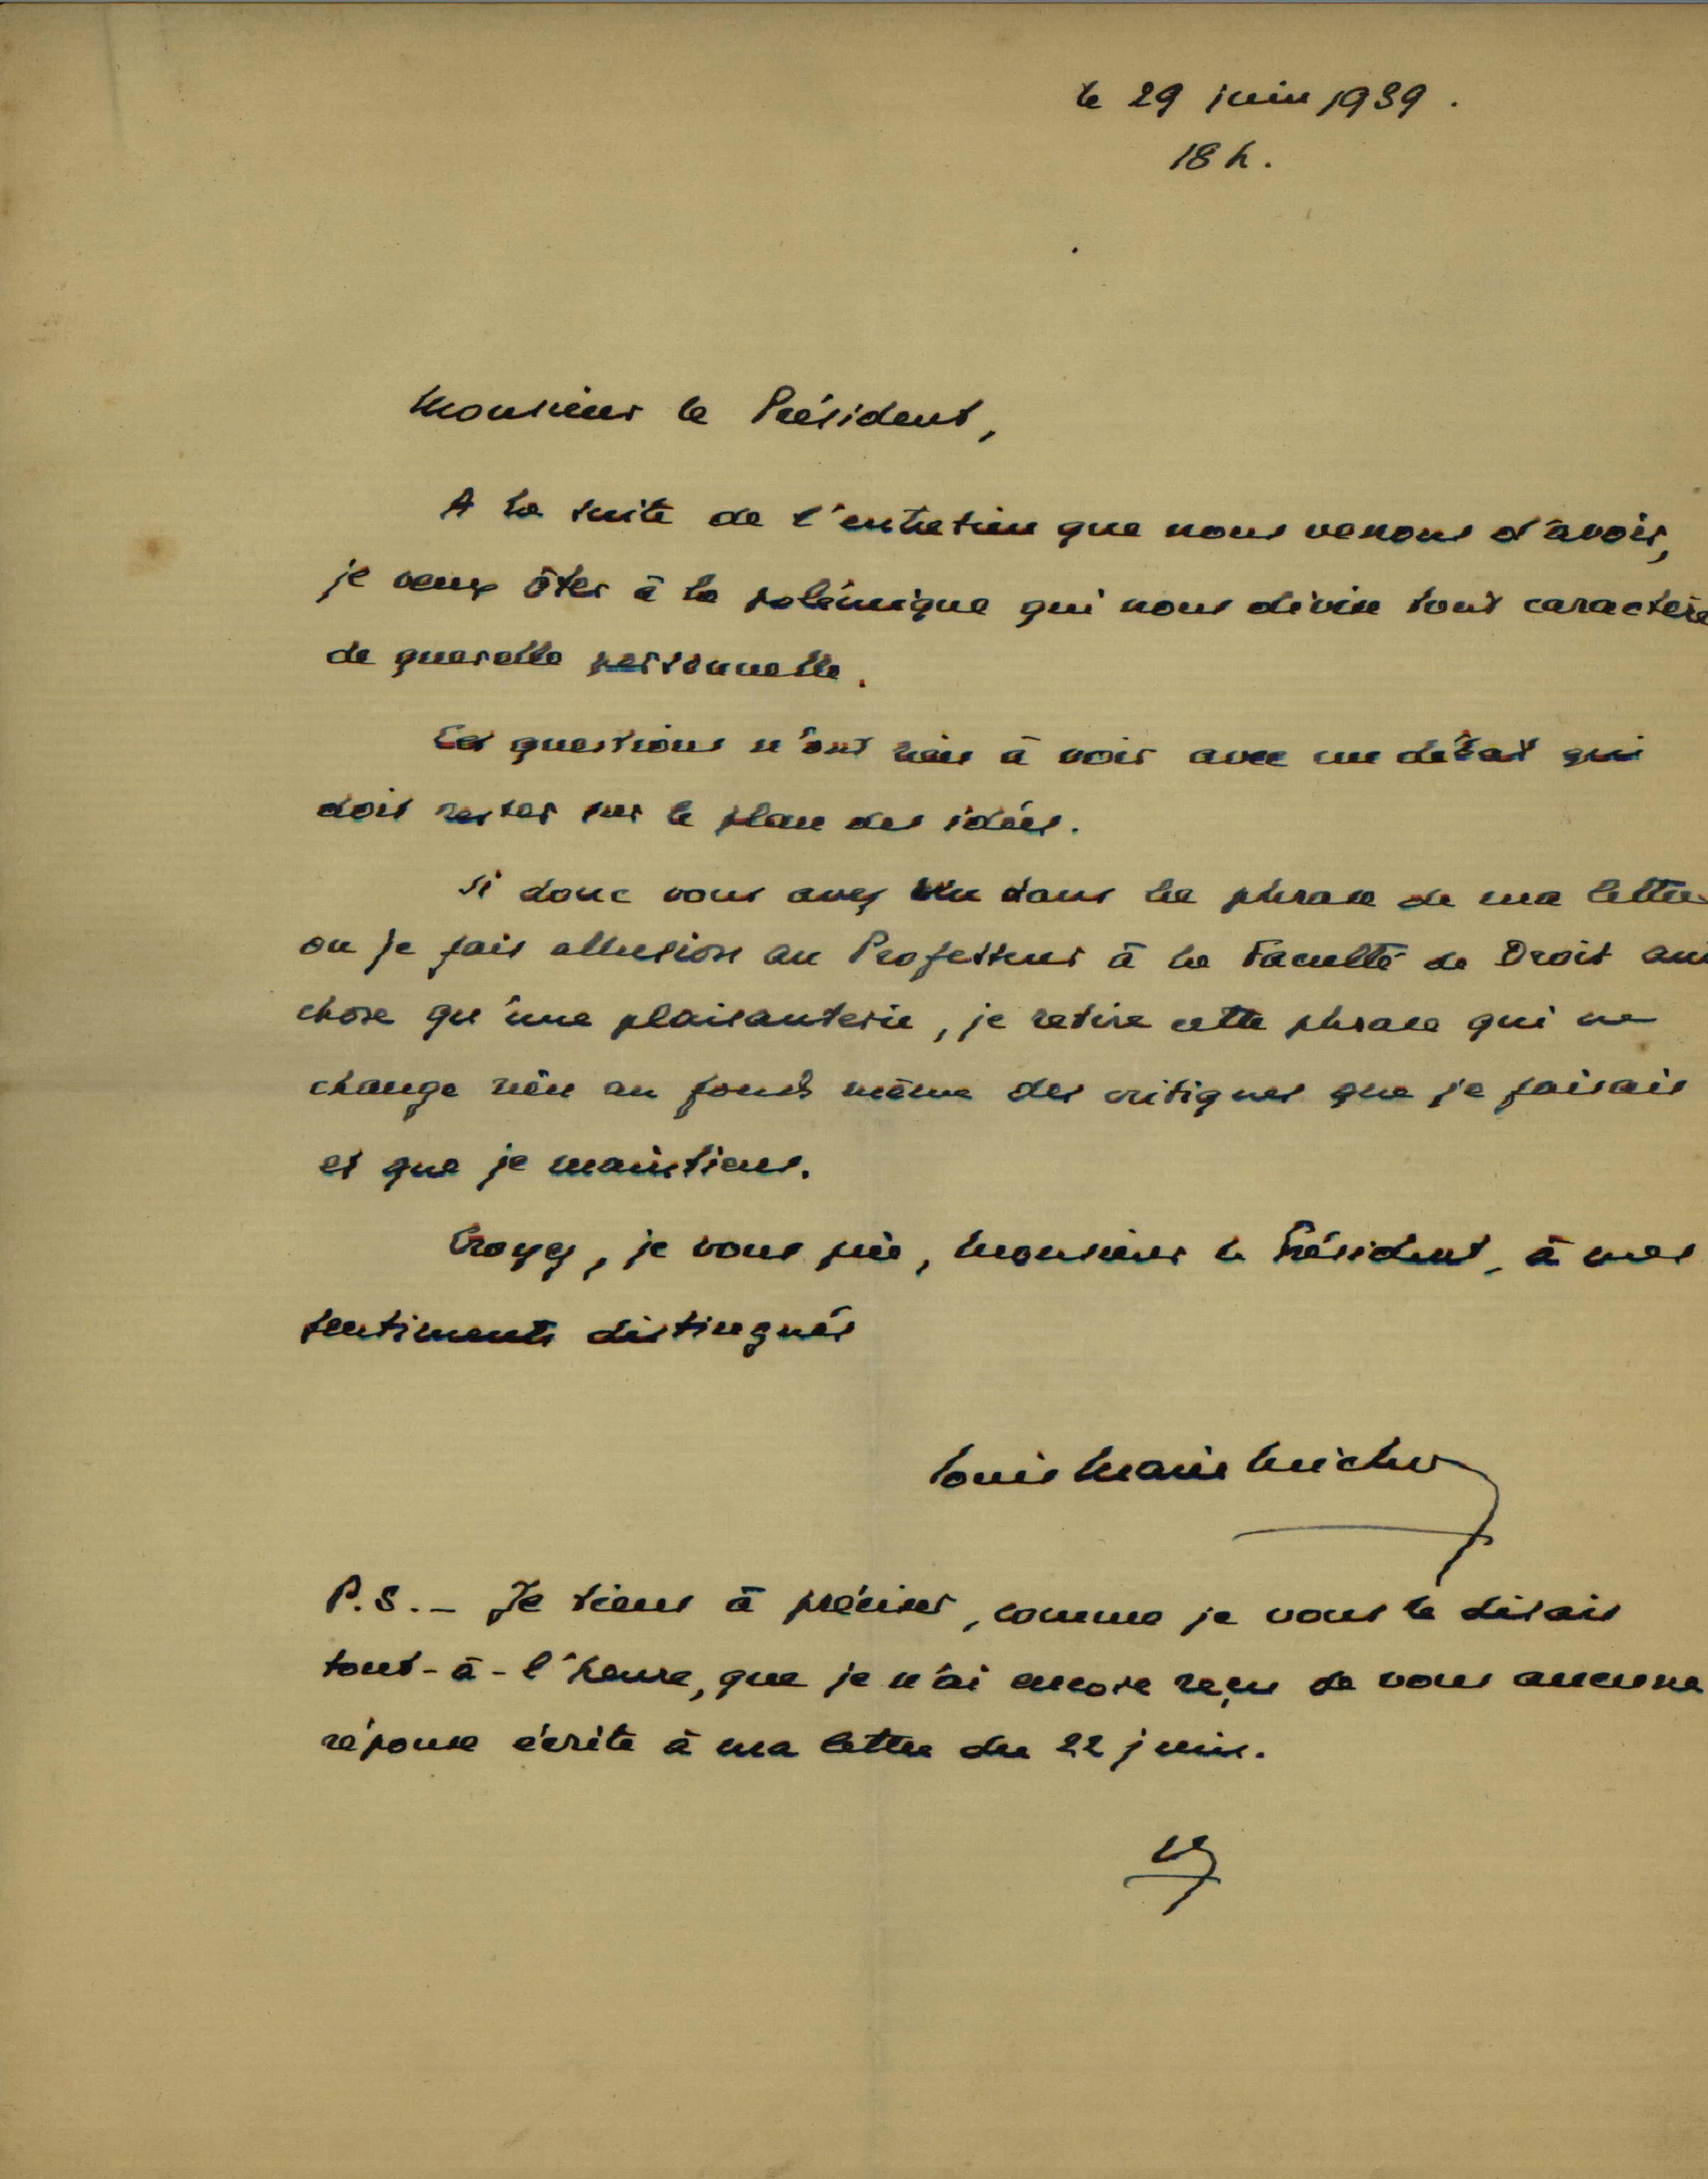 le 29 juin 1939.
18 h.
Monsieur le Président,
A la suite de l'entretien que nous venons d'avoir,
je veux ôter à la polémique qui nous divise tout caractère
de querelle personnelle.
Ces questions n'ont rien à voir avec un débat qui
doit rester sur le plan des idées.
Si donc vous avez vu dans la phrase de ma lettre
ou je fais allusion au Professeur à la Faculté de Droit
chose qu'une plaisanterie, je retire cette phrase qui ne
change rien au fond même des critiques que je faisais
et que je maintiens.
Croyez, je vous prie, Monsieur le Président, à mes
sentiments distingués
Louis Marie Michon
P.S. - Je tiens à préciser, comme je vous le disais
tout-à-l'heure, que je n'ai encore reçu de vous aucune
réponse écrite à ma lettre du 22 juin.